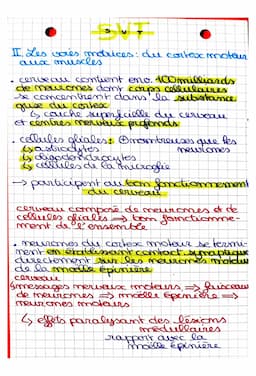 SVT
II. Les voies motrices : du cortex moteur
aux muscles
• cerveau contient env. 100 milliards
de neurones dont corps cellulaires
se concentrent dans la substance
grise du cortex
↳ couche superficielle du cerveau
et centres nerveux profonds
• cellules gliales : ⊕ nombreuses que les
neurones
↳ astrocytes
↳ oligodendrocytes
↳ cellules de la microglie
→ participent au bon fonctionnement
du cerveau
cerveau composé de neurones et de
cellules gliales → bon fonctionne-
ment de l'ensemble
• neurones du cortex moteur se termi-
nent en établissant contact synaptique
directement sur les neurones moteurs
de la moelle épinière
cerveau
↳ messages nerveux moteurs → faisceau
de neurones → moelle épinière →
neurones moteurs
↳ effets paralysant des lésions
médullaires
rapport avec la
moelle épinière